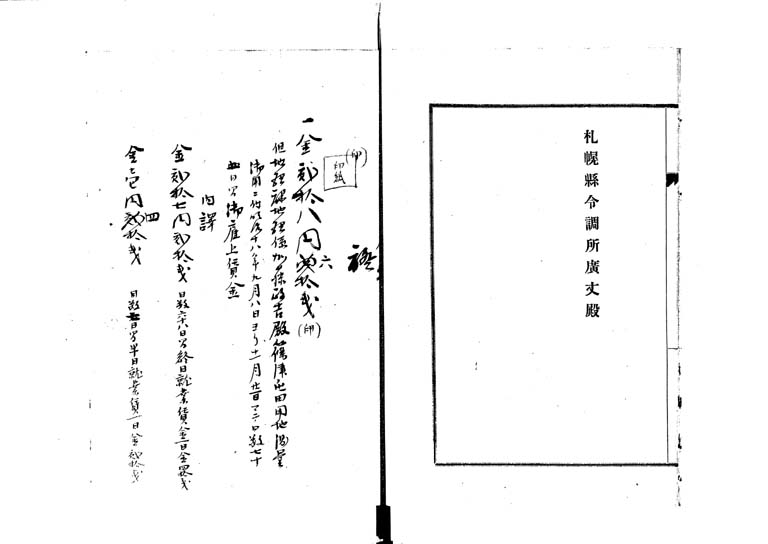 札幌縣令調所廣丈殿
證
印紙
(印)
一金弐拾八円六拾戋
(印)
但地理課地理係加藤政吉殿篠津屯田用地測量
御用ニ付明治十八年九月八日ヨリ十一月廿一日マテ日数七十
五日分御雇上賃金
内譯
金弐拾七円弐拾戋 日数六十八日分終日就業賃金一日金四拾戋
金壱円四拾戋 日数七日分半日就業賃一日金弐拾戋